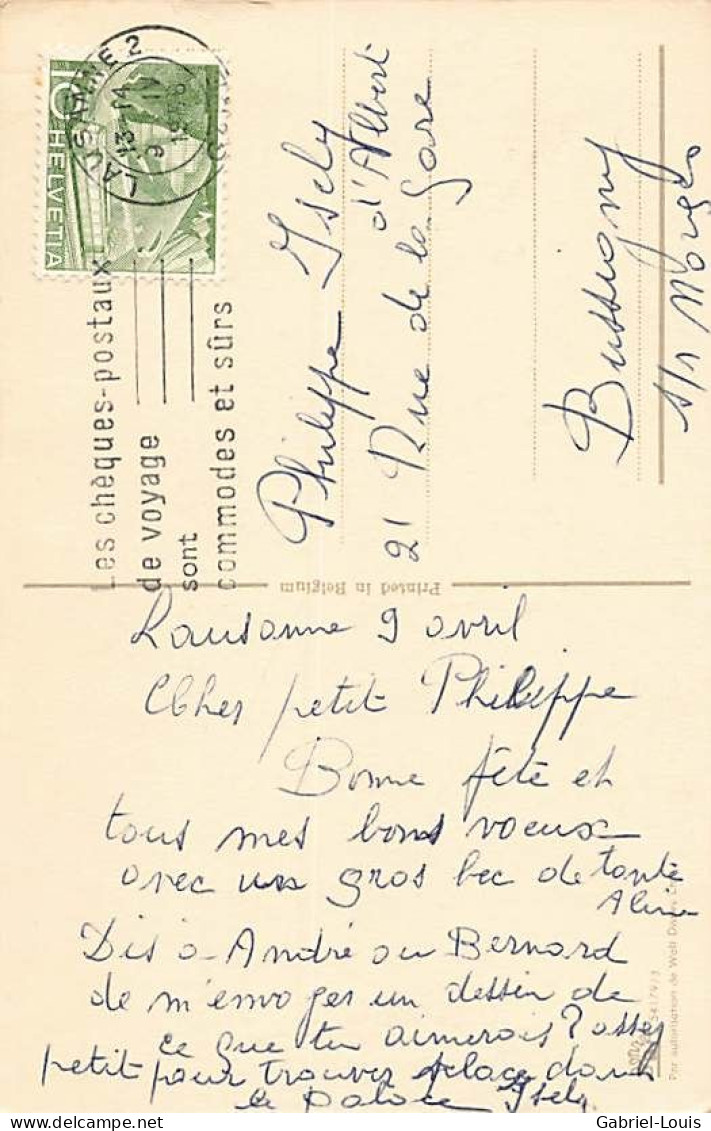 LAUSANNE 2
13 14
9 IV
10 HELVETIA
Les chèques-postaux
de voyage
sont
commodes et sûrs
Philippe Isely
d'Albert
21 Rue de la Gare
Bussigny
s/s Morges
Printed in Belgium
Lausanne 9 avril
Cher petit Philippe
Bonne fête et
tous mes bons voeux
avec un gros bec de tante
Aline
Dis à André ou Bernard
de m'envoyer un dessin de
ce que tu aimerais? assez
petit pour trouver place dans
le palace Isely
Par autorisation de Walt Disney
Gabriel-Louis